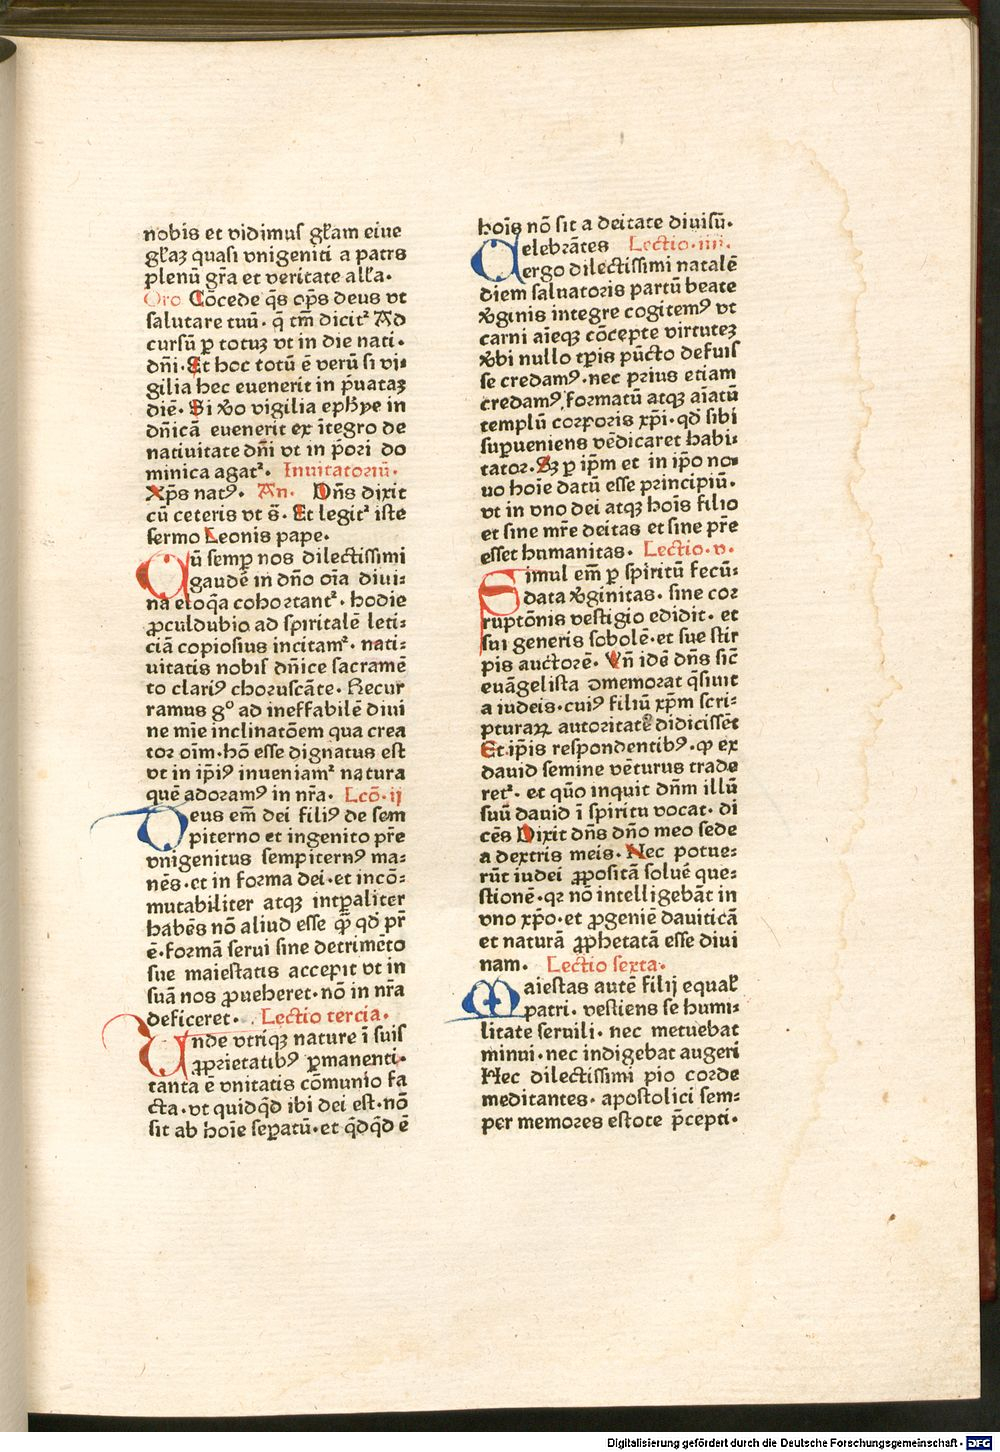 nobis et vidimus gl̃am eius
gl̃aʒ quasi vnigeniti a patrs
plenũ gr̃a et veritate all'a.
Oro Cõcede q̃s op̃s deus vt
salutare tuũ. q̃ tm̃ dicit᷑ Ad
cursũ ꝑ totuʒ vt in die nati.
dñi. Et hoc totũ ē verũ si vi⸗
gilia hec euenerit in p̃uataʒ
diē. Si ꝟo vigilia ephye in
dñicã euenerit ex ĩtegro de
natiuitate dñi vt in p̃ori do
minica agat᷑. Inuitatoriũ.
Xp̃s natꝰ. An. Dñs dixit
cũ ceteris vt s̃. Et legit᷑ iste
sermo Leonis pape.
Cũ semꝑ nos dilectissimi
gaudē in dño oĩa diui⸗
na eloq̃a cohortant᷑. hodie
ꝓculdubio ad spiritalē leti⸗
ciã copiosius incitam᷑. nati⸗
uitatis nobis dñice sacramē
to clariꝰ choruscãte. Recur
ramus gͦ ad ineffabilē diui
ne mĩe inclinatõem qua crea
tor oĩm. hõ esse dignatus est
vt in ip̃iꝰ inueniam᷑ natura
quē adoramꝰ in nr̃a. Lcõ. ij
Deus em̃ dei filiꝰ de sem
piterno et ingenito pr̃e
vnigenitus sempiternꝰ ma⸗
nēs. et in forma dei. et incõ⸗
mutabiliter atqʒ intꝑaliter
habēs nõ aliud esse q̃ꝫ qd̃ pr̃
ē. formã serui sine detrimēto
sue maiestatis accepit vt in
suã nos ꝓueheret. nõ in nr̃a
deficeret. Lectio tercia.
Unde vtriqʒ nature ĩ suis
ꝓprietatibꝰ ꝑmanenti.
tanta ē vnitatis cõmunio fa
cta. vt quidq̃d ibi dei est. nõ
sit ab hoĩe seꝑatũ. et q̃dq̃d ē
hoĩs nõ sit a deitate diuisũ.
Celebrãtes Lectio. iiii.
ergo dilectissimi natalē
diem saluatoris partũ beate
ꝟginis integre cogitemꝰ vt
carni aĩeqʒ cõcepte virtuteʒ
ꝟbi nullo tꝑis pũcto defuis
se credamꝰ. nec prius etiam
credamꝰ formatũ atqʒ aĩatũ
templũ corporis xp̃i. qd̃ sibi
suꝑueniens vēdicaret habi⸗
tator. Sʒ ꝑ ip̃m et in ip̃o no⸗
uo hoĩe datũ esse principiũ.
vt in vno dei atqʒ hoĩs filio
et sine mr̃e deitas et sine pr̃e
esset humanitas. Lectio. v.
Simul em̃ ꝑ spiritũ fecũ⸗
data ꝟginitas. sine cor
ruptõnis vestigio edidit. et
sui generis sobolē. et sue stir
pis auctorē. Vñ idē dñs sic̃
euãgelista ꝺmemorat q̃siuit
a iudeis. cuiꝰ filiũ xp̃m scri⸗
pturaꝝ autoritatē didicissēt
Et ip̃is respondentibꝰ. ꝙ ex
dauid semine vēturus trade
ret᷑. et quõ inquit dñm illũ
suũ dauid ĩ spiritu vocat. di
cēs Dixit dñs dño meo sede
a dextris meis. Nec potue⸗
rũt iudei ꝓpositã soluē que⸗
stionē. qꝛ nõ intelligebãt in
vno xp̃o. et ꝓgeniē dauiticã
et naturã ꝓphetatã esse diui
nam. Lectio sexta.
Maiestas autē filij equal'
patri. vestiens se humi⸗
litate seruili. nec metuebat
minui. nec indigebat augeri
Hec dilectissimi pio corde
meditantes. apostolici sem⸗
per memores estote p̃cepti.
Digitalisierung gefördert durch die Deutsche Forschungsgemeinschaft - DFG